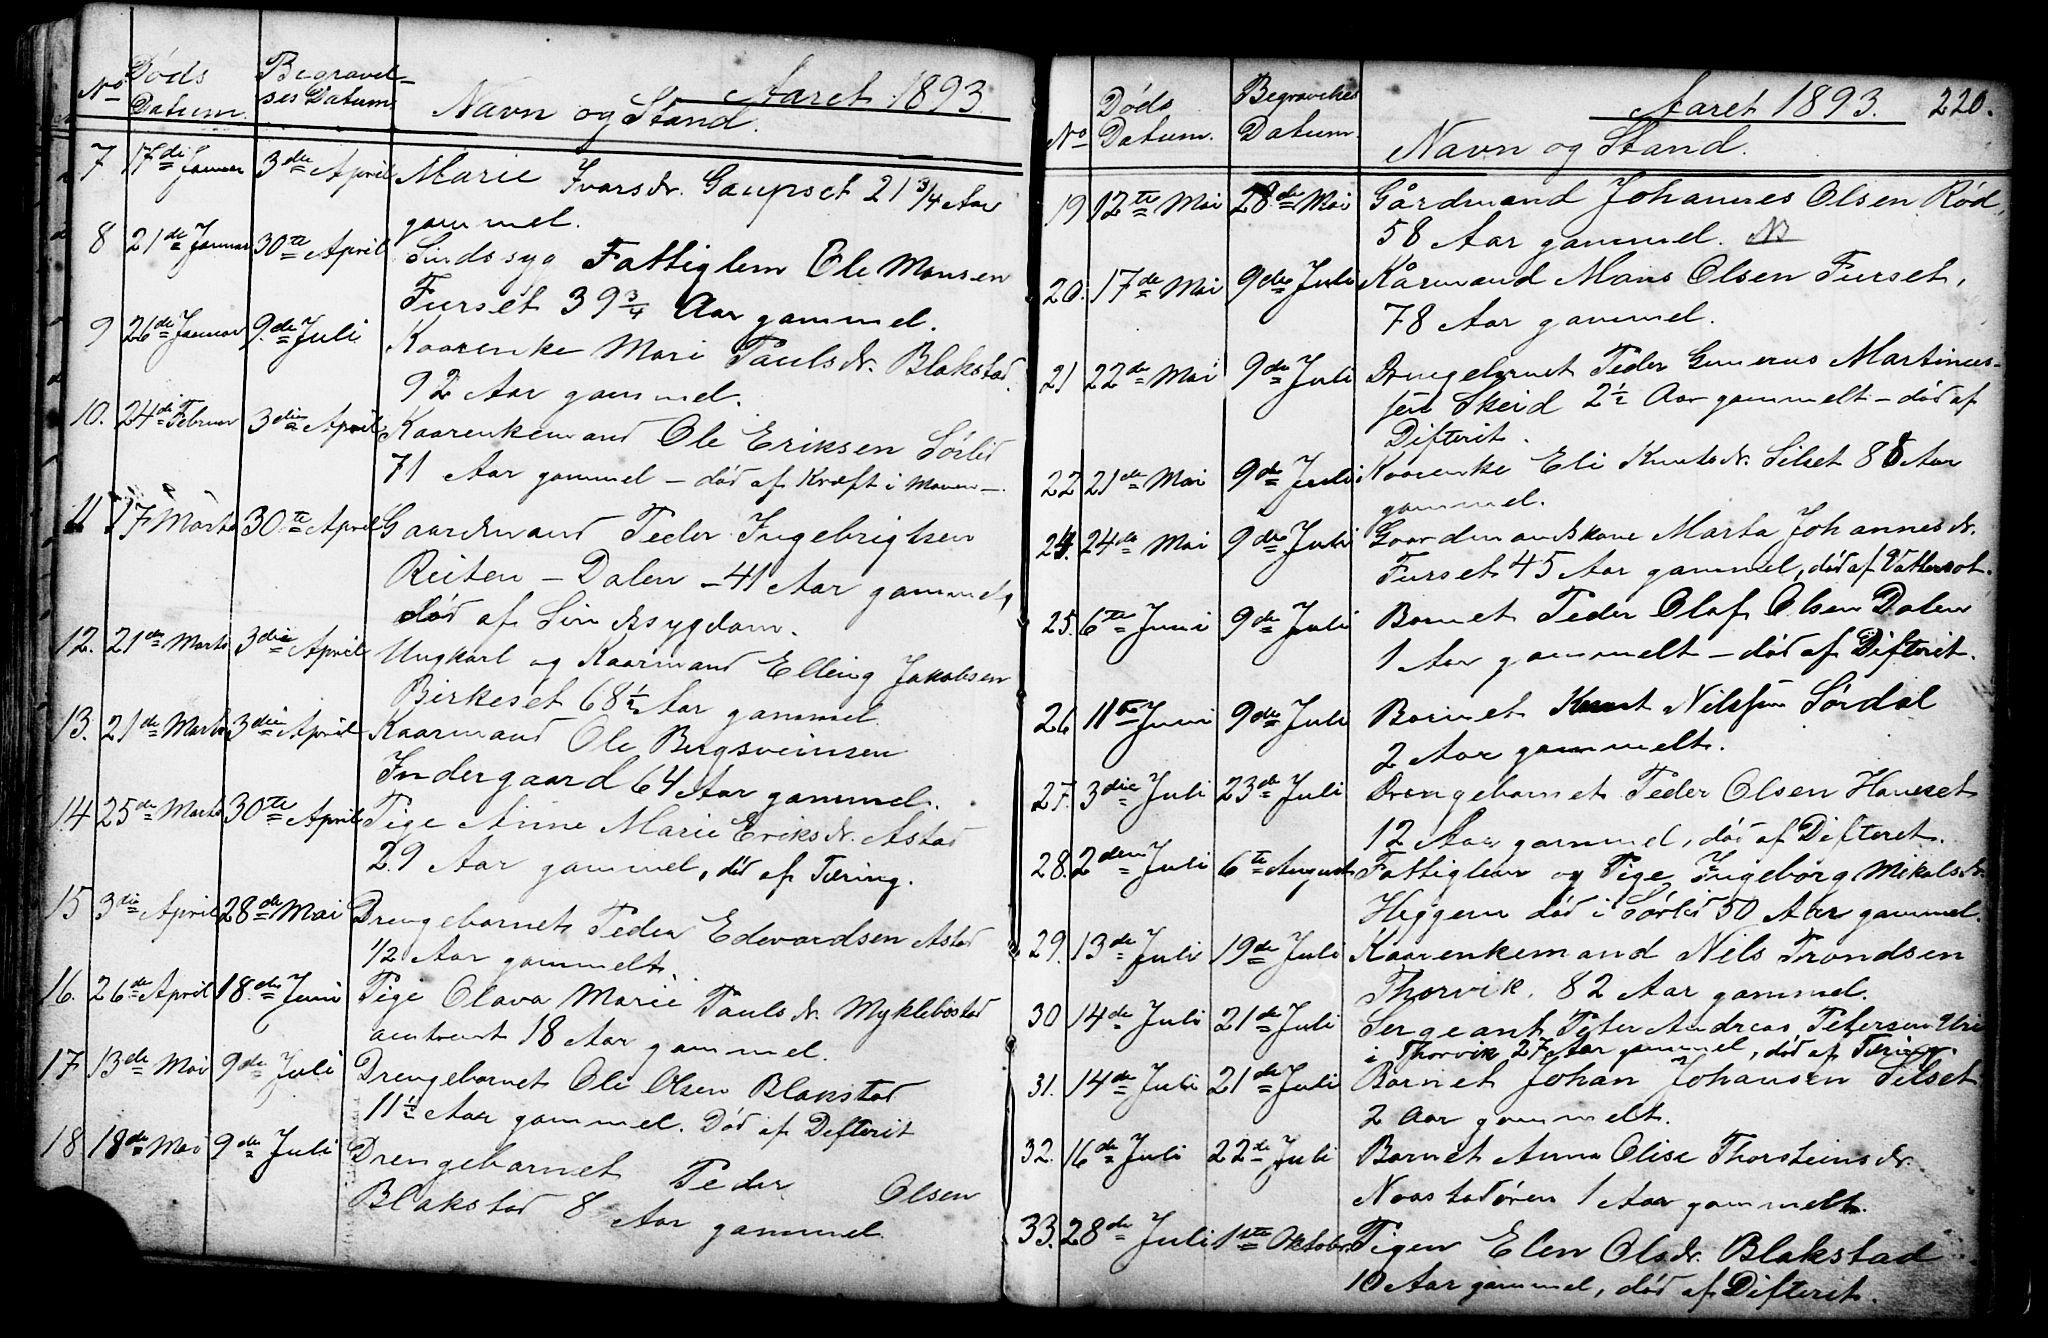 Aaret 1893.
No Døds Datum. Begravelses Datum Navn og Stand.
7 17de Januar 3die April Marie Ivarsdr. Gaupset 21 3/4 Aar
gammel.
8 21de Januar 30te April Sindssyg Fattiglem Ole Monsen
Furset 39 3/4 Aar gammel.
9 26de Januar 9de Juli Kaarenke Mari Paulsdr. Blakstad.
92 Aar gammel.
10. 24de Februar 3die April Kaarenkemand Ole Eriksen Sørlid
71 Aar gammel – død af Kræft i Maven –
11 17 Marts 30te April Gaardmand Peder Ingebrigtsen
Reiten – Dalen – 41 Aar gammel,
død af Sindssygdom.
12. 21de Marts 3die April Ungkarl og Kaarmand Elling Jakobsen
Birkeset 68 1/2 Aar gammel.
13. 21de Marts 3die April Kaarmand Ole Bergsveinsen
Indergaard 64 Aar gammel.
14 25de Marts 30te April Pige Anne Marie Eriksdr. Astad
29 Aar gammel, død af Tæring.
15 3die April 28de Mai Drengebarnet Peder Edvardsen Astad
1/2 Aar gammelt.
16. 26de April 18de Juni Pige Olava Marie Paulsdr. Myklebostad
omtrent 18 Aar gammel.
17 13de Mai 9de Juli Drengebarnet Ole Olsen Blakstad
11 1/2 Aar gammel. Død af Difterit
18 18de Mai 9de Juli Drengebarnet Peder Olsen
Blakstad 8 Aar gammel
Aaret 1893. 220.
No Døds Datum. Begravelses Datum. Navn og Stand.
19 12te Mai 28de Mai Gårdmand Johannes Olsen Rød,
58 Aar gammel. NB
20. 17de Mai 9de Juli Kårmand Mons Olsen Furset,
78 Aar gammel.
21 22de Mai 9de Juli Drengebarnet Peder Gunerus Martinus-
sen Skeid 2 1/2 Aar gammelt – død af
Difterit.
22 21de Mai 9de Juli Kaarenke Eli Knutsdr. Silset 88 Aar
gammel.
24. 24de Mai 9de Juli Gaardmandskone Marta Johannesdr.
Furset 45 Aar gammel, død af Vattersot.
25. 6te Juni 9de Juli Barnet Peder Olaf Olsen Dalen
1 Aar gammelt – død af Difterit.
26 11te Juni 9de Juli Barnet Knut Nilssen Sørdal
2 Aar gammelt.
27. 3die Juli 23de Juli Drengebarnet Peder Olsen Hauset
12 Aar gammel, død af Difteret.
28. 2den Juli 6te August Fattiglem og Pige Ingeborg Mikalsdr.
Heggem død i Sørlid 50 Aar gammel.
29. 13de Juli 19de Juli Kaarenkemand Nils Trondsen
Thorvik. 82 Aar gammel.
30 14de Juli 21de Juli Sergeant Peter Andreas Petersen Uri
i Thorvik 27 Aar gammel, død af Tæring.
31. 14de Juli 21de Juli Barnet Johan Johansen Silset
2 Aar gammelt.
32. 16de Juli 22de Juli Barnet Anna Olise Thorsteinsdr.
Naastadøren 1 Aar gammelt.
33. 28de Juli 1ste Oktober Pigen Elen Olsdr. Blakstad
10 Aar gammel, død af Difterit.